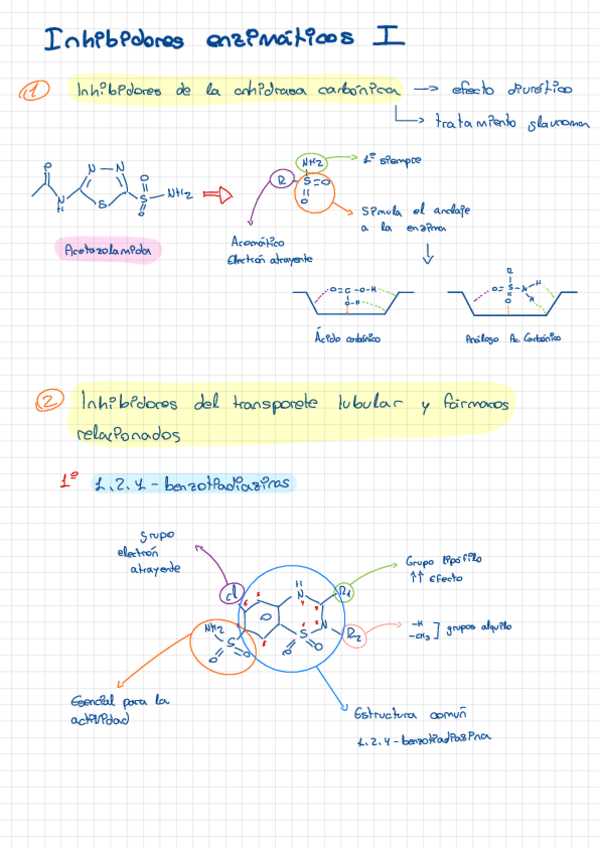 Inhibidores enzimáticos I
1 Inhibidores de la anhidrasa carbónica → efecto diurético
→ tratamiento glaucoma
N N
O
N
H
S
O
S
O
NH2
Acetazolamida
NH2 → 1º siempre
R S=O
O
Simula el anclaje
a la enzima
Aromático
Electrón atrayente
O=C-O-H
O-H
Ácido carbónico
R
O=S-N-H
O H
Análogo Ac Carbónico
2 Inhibidores del transporete tubular y fármacos
relacionados
1º 1.2.4-benzotiadiazinas
grupo
electrón
atrayente
Grupo lipófilo
↑↑ Efecto
Cl
H
N
R1
N
R2
S
O O
NH2
S
O O
-H
-CH3 ] grupos alquilo
Esencial para la
actividad
Estructura común
1.2.4-benzotiadiazina